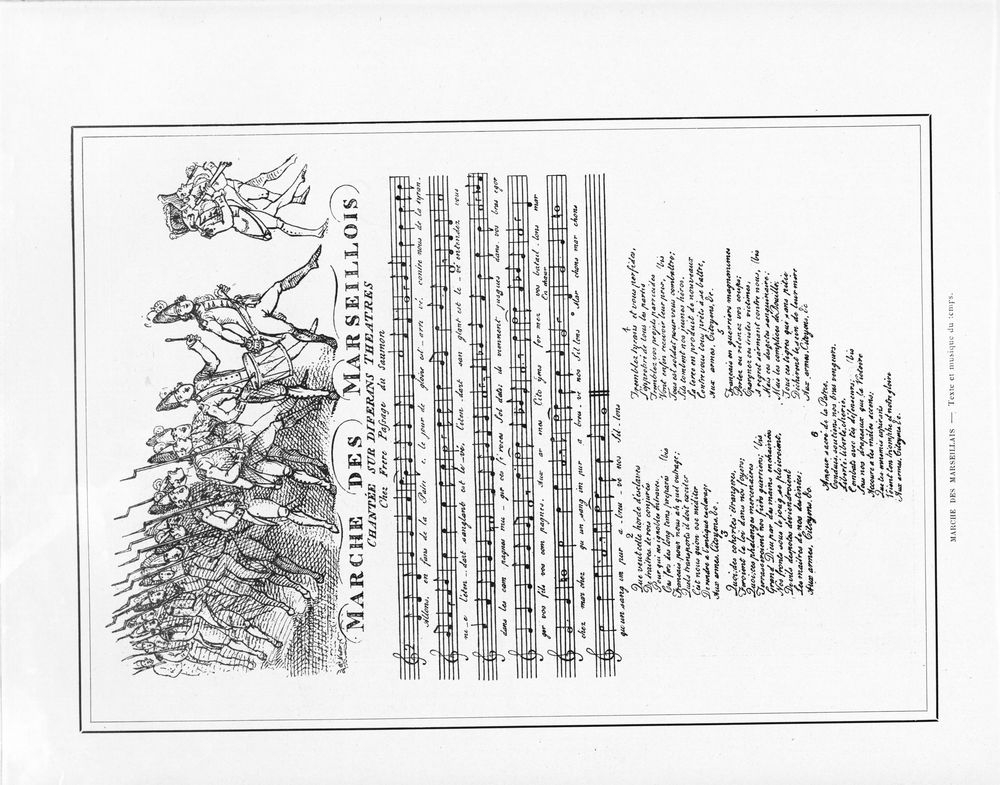 MARCHE DES MARSEILLOIS
CHANTÉE SUR DIFERANS THEATRES
Chez Frere Passage du Saumon
Allons, en fans de la Patri e, le jour de gloire est ar ri vé, contre nous de la tyran-
ni-e L'éten dart sanglant est le-vé, l'éten dart san glant est le-vé entendez vous
dans les cam pagnes mu-gir ces fé roces Sol dats, ils viennent jusques dans vos bras egor
ger vos fils vos com pagnes. Aux ar mes Cito yens for mez vos batail lons mar
Ce chœur
chez mar chez qu'un sang im pur a breu ve nos Sil lons Mar chons mar chons
qu'un sang im pur a breu ve nos Sil lons
2
Que veut cette horde d'esclaves
De traîtres, de rois conjurés
Pour qui ces ignobles entraves,
Ces fers dès long tems préparés bis
Français pour nous, ah quel outrage;
Quels transports il doit exciter
C'est nous qu'on ose méditer
De rendre à l'antique esclavage
Aux armes, Citoyens, &c.
3
Quoi des cohortes étrangeres,
Feroient la loi dans nos foyers;
Quoi ces phalanges mercenaires
Terrasseroient nos fiers guerriers; bis
Grand Dieu par des mains enchainées
Nos fronts sous le joug se ploieroient,
De vils despotes deviendroient
Les maitres de nos destinées;
Aux armes, Citoyens, &c.
4
Tremblez, tyrans et vous perfides,
L'opprobre de tous les partis
Tremblez, vos projets parricides
Vont enfin recevoir leur prix, bis
Tout est soldat pour vous combattre;
S'ils tombent nos jeunes héros,
La terre en produit de nouveaux
Contre vous tout prêts à se battre,
Aux armes, Citoyens, &c.
5
Français en guerriers magnanimes
Portez ou retenez vos coups;
Épargnez ces tristes victimes,
A regret s'armant contre nous, bis
Mais ces despotes sanguinaires;
Mais les complices de Bouillé,
Tous ces tigres qui sans pitié
Déchirent le sein de leur mère
Aux armes, Citoyens, &c.
6
Amour sacré de la Patrie,
Conduis, soutiens nos bras vengeurs.
Liberté, liberté chérie,
Combats avec tes défenseurs; bis
Sous nos drapeaux que la Victoire
Accoure à tes mâles accens;
Que tes ennemis expirans
Voient ton triomphe et notre gloire
Aux armes, Citoyens &c.
MARCHE DES MARSEILLAIS — Texte et musique du temps.